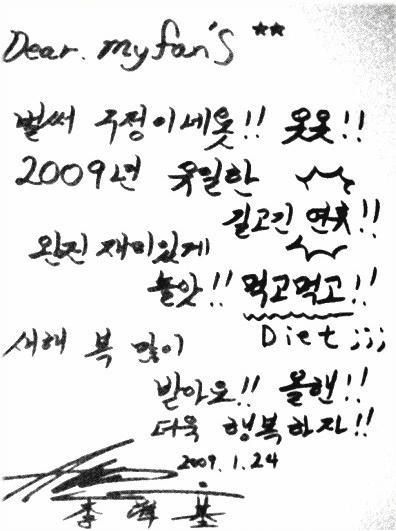 Dear. my fan's **
벌써 구정이세욧!! 옷옷!!
2009년 유일한
길고긴 연휴!!
완전 재미있게
놀앗!! 먹고먹고!!
Diet ;;;
새해 복 많이
받아요!! 올핸!!
더욱 행복하자!!
2009.1.24
李 基